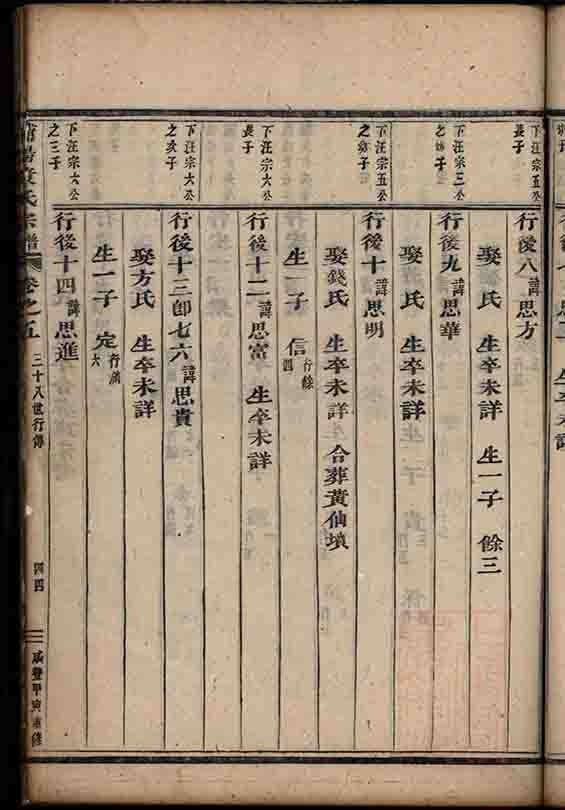 下汪宗五公
長子
行後八 諱 思方
娶 氏 生卒未詳 生一子 餘三
下汪宗三公
之 子
行後九 諱 思華
娶 氏 生卒未詳
下汪宗五公
之 子
行後十 諱 思明
娶錢氏 生卒未詳 合葬黃仙墳
生一子 信 行餘四
下汪宗六公
長子
行後十二 諱 思富 生卒未詳
下汪宗六公
之次子
行後十三卽七六 諱 思貴
娶方氏 生卒未詳
生一子 定 行 六
下汪宗六公
之三子
行後十四 諱 思進
氏宗譜 卷之五 三十八世行傳 四四 咸豐甲寅重修